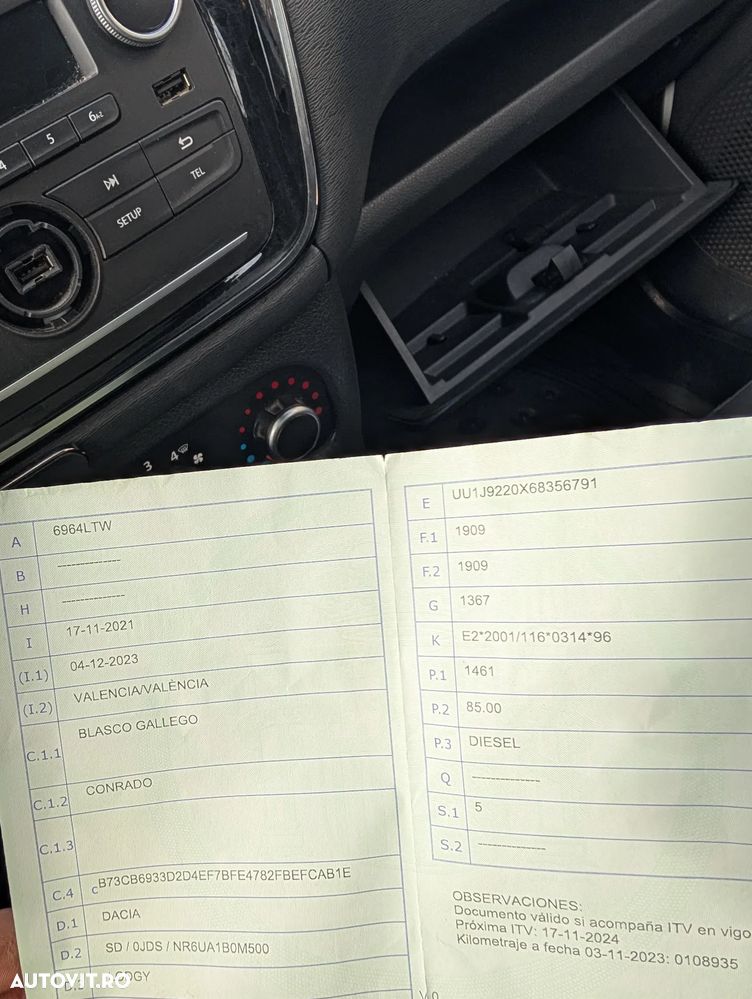 4
5
6
TEL
SETUP
3
4
A 6964LTW
B --------------
H --------------
I 17-11-2021
(I.1) 04-12-2023
(I.2) VALENCIA/VALÈNCIA
C.1.1 BLASCO GALLEGO
C.1.2 CONRADO
C.1.3
C.4 cB73CB6933D2D4EF7BFE4782FBEFCAB1E
D.1 DACIA
D.2 SD / 0JDS / NR6UA1B0M500
D.3
E UU1J9220X68356791
F.1 1909
F.2 1909
G 1367
K E2*2001/116*0314*96
P.1 1461
P.2 85.00
P.3 DIESEL
Q --------------
S.1 5
S.2 --------------
OBSERVACIONES:
Documento válido si acompaña ITV en vigo
Próxima ITV: 17-11-2024
Kilometraje a fecha 03-11-2023: 0108935
AUTOVIT.RO